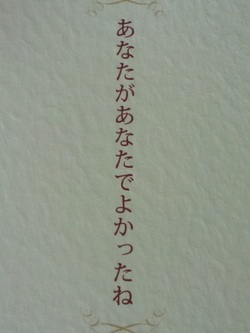 あなたがあなたでよかったね